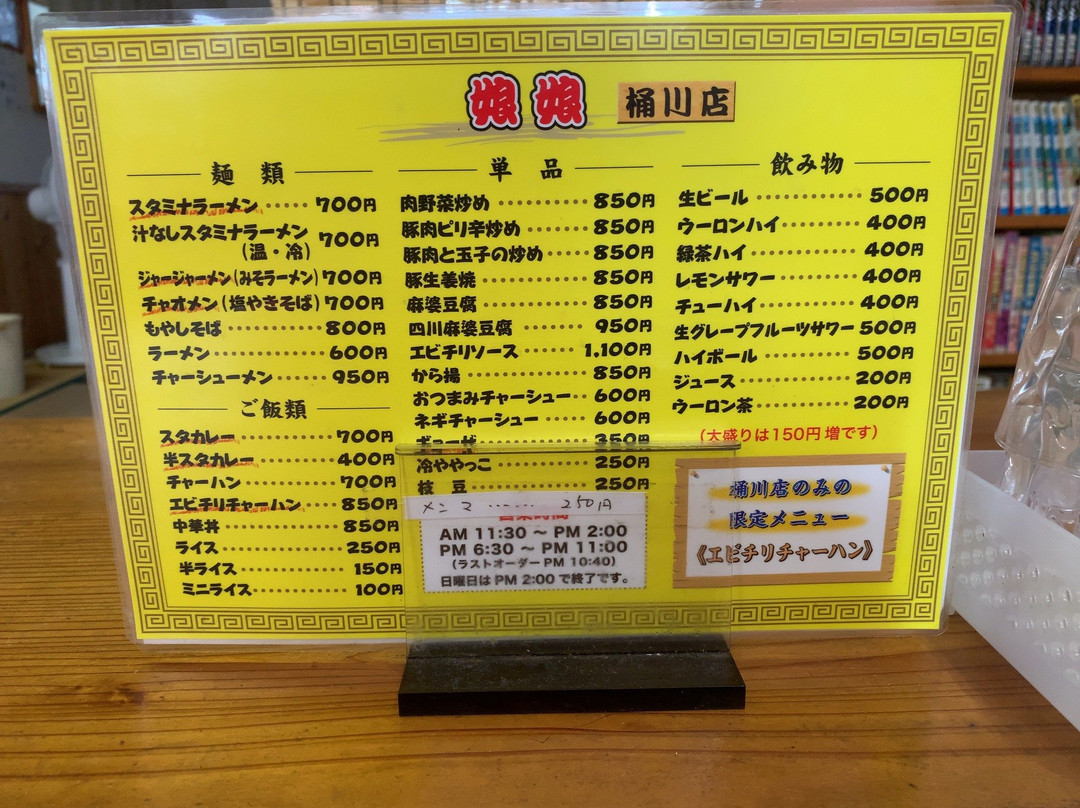 娘娘 桶川店
麺類
スタミナラーメン……700円
汁なしスタミナラーメン
(温・冷) 700円
ジャージャーメン(みそラーメン)700円
チャオメン(塩やきそば)700円
もやしそば…………800円
ラーメン……………600円
チャーシューメン……950円
ご飯類
スタカレー…………700円
半スタカレー………400円
チャーハン…………700円
エビチリチャーハン……850円
中華丼………………850円
ライス………………250円
半ライス……………150円
ミニライス…………100円
単品
肉野菜炒め…………850円
豚肉ピリ辛炒め……850円
豚肉と玉子の炒め……850円
豚生姜焼……………850円
麻婆豆腐……………850円
四川麻婆豆腐………950円
エビチリソース……1,100円
から揚………………850円
おつまみチャーシュー…600円
ネギチャーシュー……600円
ギョーザ……………350円
冷ややっこ…………250円
枝豆…………………250円
メンマ……… 250円
営業時間
AM 11:30 ~ PM 2:00
PM 6:30 ~ PM 11:00
(ラストオーダー PM 10:40)
日曜日は PM 2:00 で終了です。
飲み物
生ビール……………500円
ウーロンハイ………400円
緑茶ハイ……………400円
レモンサワー………400円
チューハイ…………400円
生グレープフルーツサワー 500円
ハイボール…………500円
ジュース……………200円
ウーロン茶…………200円
(大盛りは150円増です)
桶川店のみの
限定メニュー
《エビチリチャーハン》